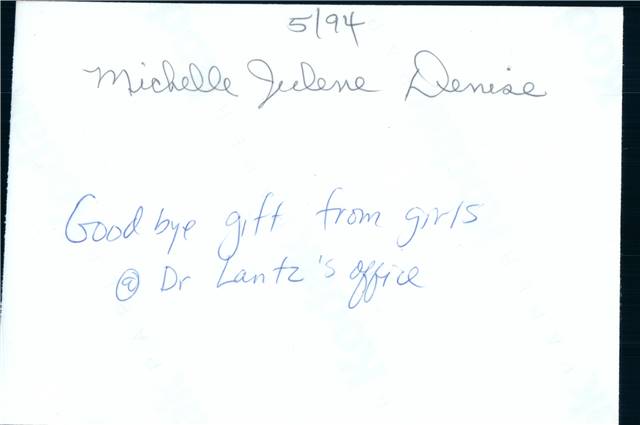 5/94
Michelle Julene Denise
Goodbye gift from girls
@ Dr Lantz's office